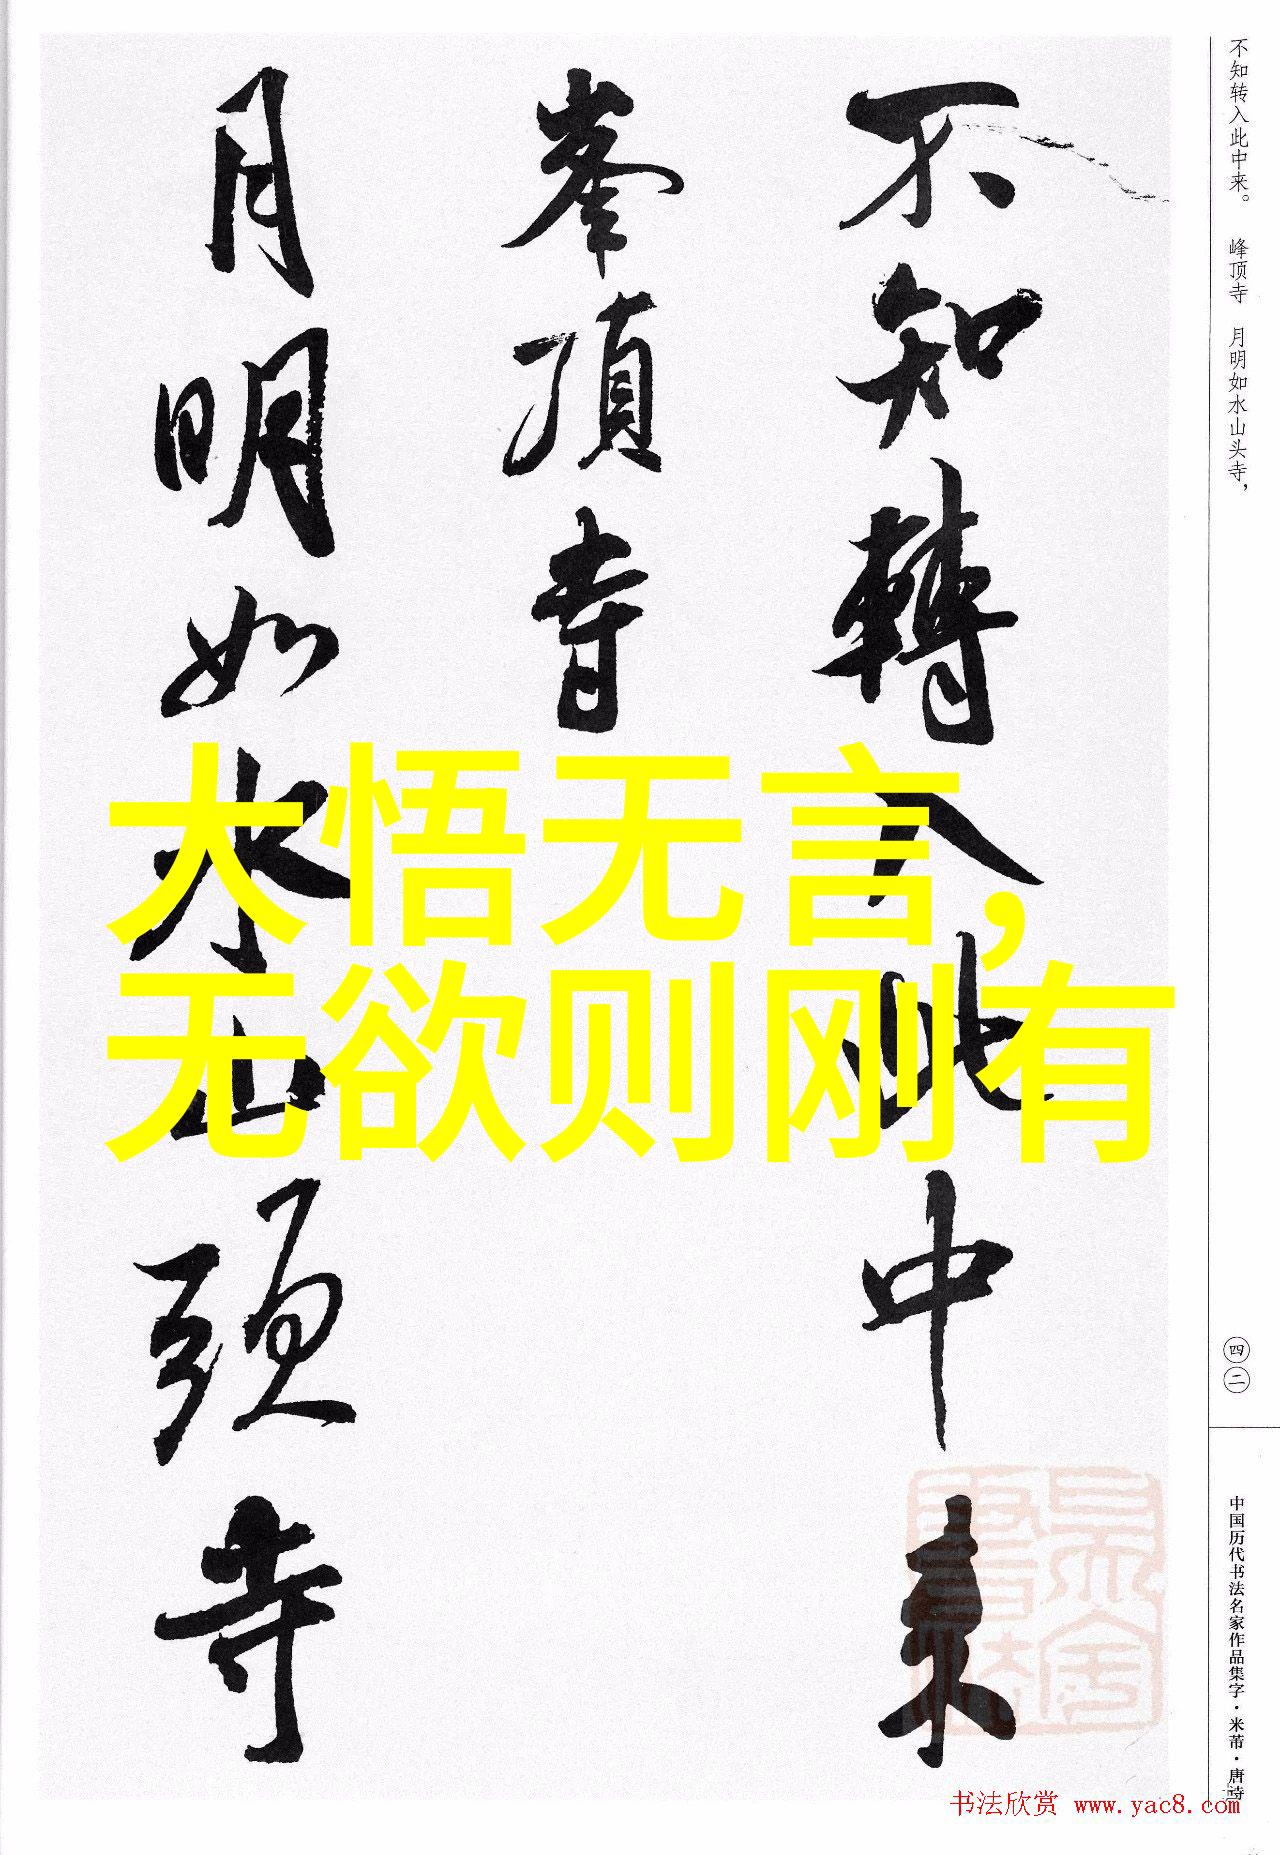 不知轉入此中来
峯頂寺
月明如水山頭寺
大悟无言，
无欲则刚有
不知转入此中来。 峰顶寺 月明如水山头寺，
四二
中国历代书法名家作品集字·米芾·唐诗
书法欣赏 www.yac8.com